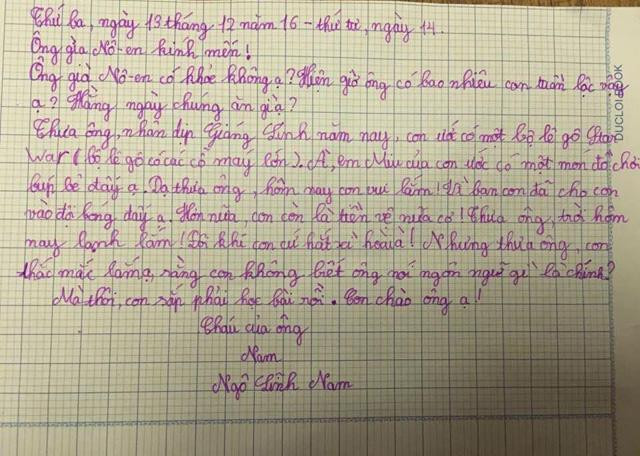 Thứ ba, ngày 13 tháng 12 năm 16 - thứ tư, ngày 14.
Ông già Nô-en kính mến!
Ông già Nô-en có khỏe không ạ? Hiện giờ ông có bao nhiêu con tuần lộc vậy
ạ? Hằng ngày chúng ăn gì ạ?
Thưa ông, nhân dịp Giáng Sinh năm nay, con ước có một bộ lê gô Star
War (bộ lê gô có các cỗ máy lớn). À, em Miu của con ước có một món đồ chơi
búp bê đấy ạ. Dạ thưa ông, hôm nay con vui lắm! Vì bạn con đã cho con
vào đội bóng đấy ạ. Hơn nữa, con còn là tiền vệ nữa cơ! Thưa ông, trời hôm
nay lạnh lắm! Đôi khi con cứ hát xì hoài à! Nhưng thưa ông, con
thắc mắc lắm ạ, rằng con không biết ông nói ngôn ngữ gì là chính?
Mà thôi, con sắp phải học bài rồi. Con chào ông ạ!
Cháu của ông
Nam
Ngô Lĩnh Nam
DUCLOI BOOK